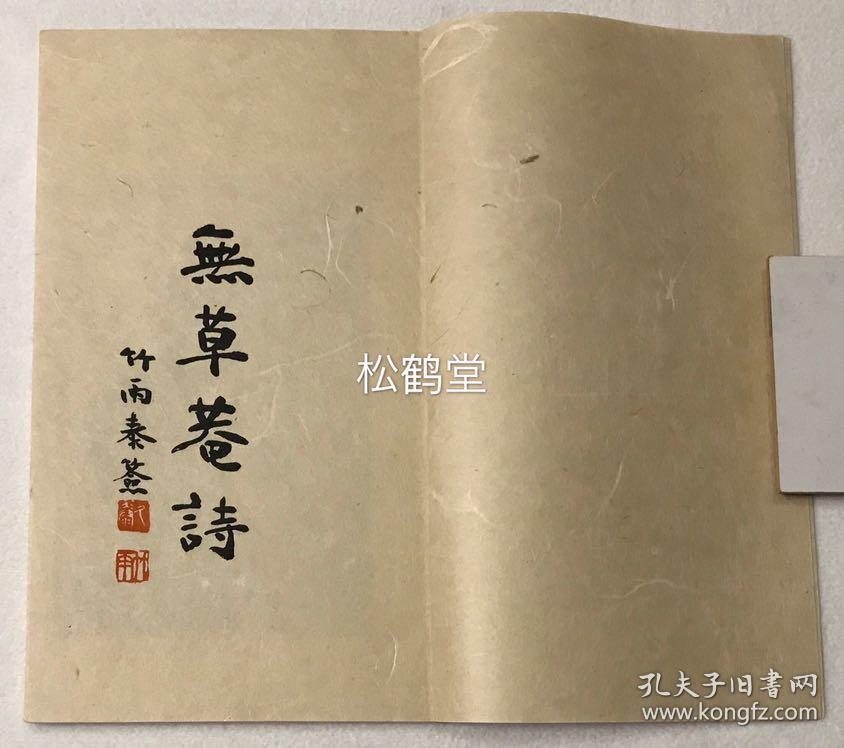 無草菴詩
竹雨泰簽
松鹤堂
孔夫子旧书网
www.kongfz.com